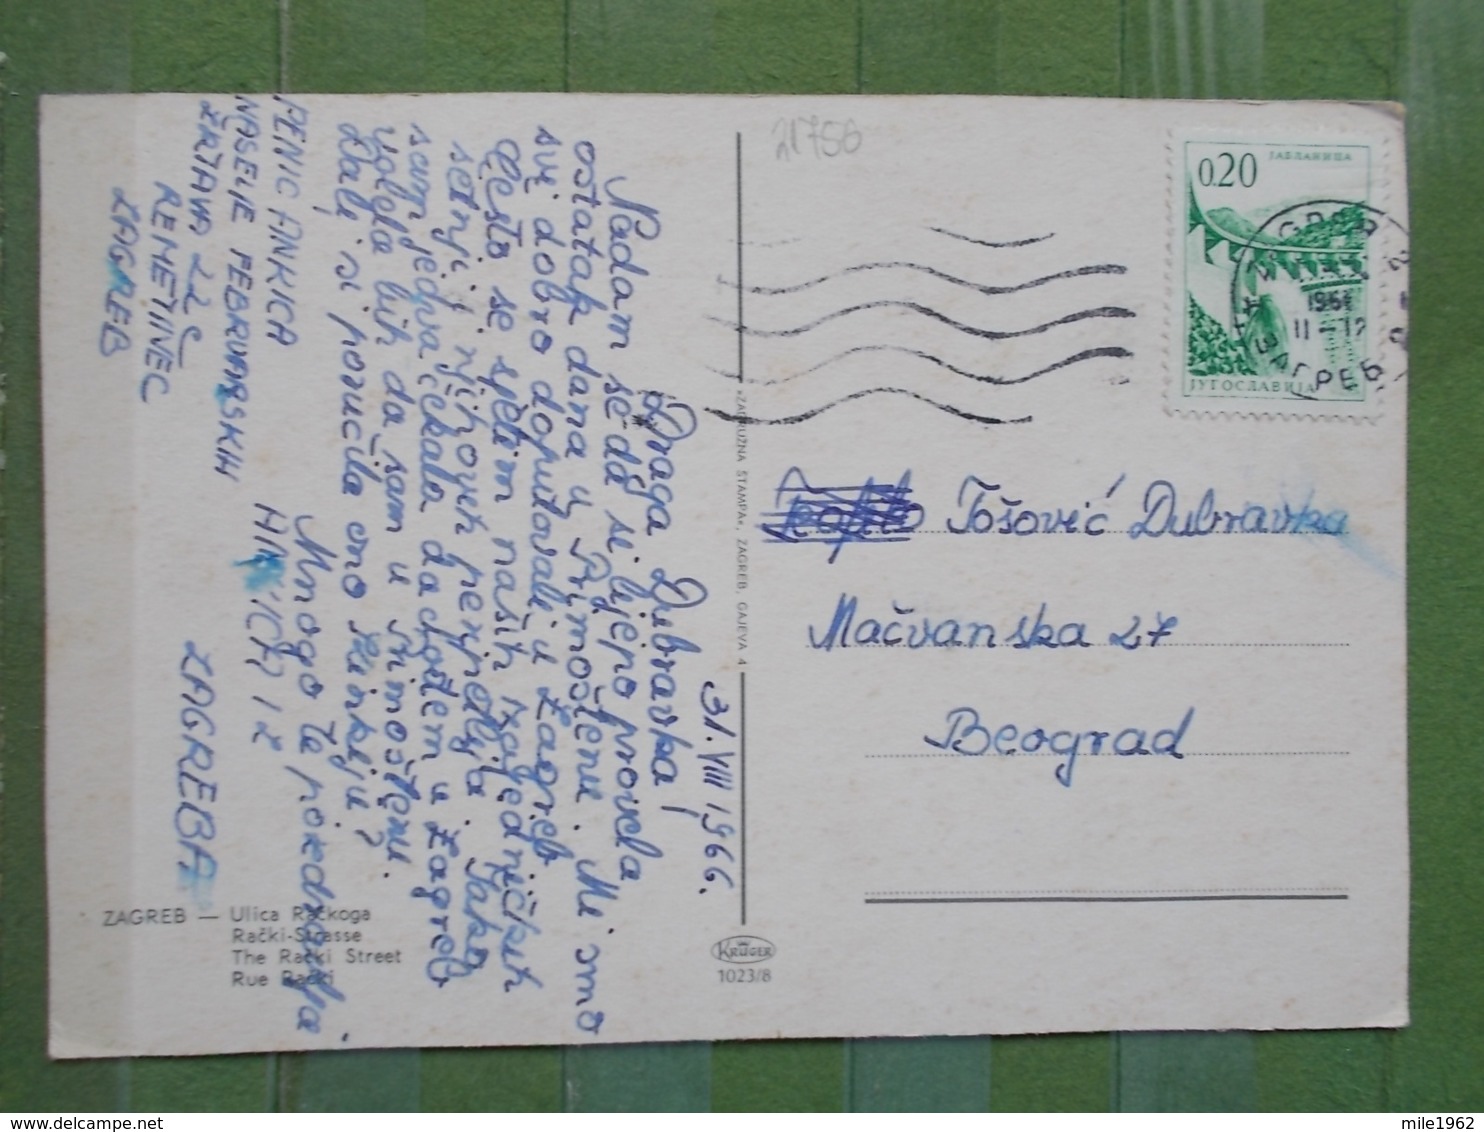 31. VIII 1966.
Draga Dubravka!
Nadam se da si lijepo provela
ostatak dana u Primoštenu. Mi smo
svi dobro doputovali u Zagreb
Često se sjetim naših zajedničkih
šetnji i njihovih
sam jedva čekala da dođem u Zagreb
voljela bih da sam u Primoštenu.
Dali si poručila ono Zlinkiju?
Mnogo Te pozdravlja
ANKICA IZ
ZAGREBA
PENIC ANKICA
NASELJE FEBRUARSKIH
ŽRTAVA 22c
REMETINEC
ZAGREB
21756
0.20
ЈАБЛАНИЦА
ЈУГОСЛАВИЈА
ЗАГРЕБ
11-12
Tošović Dubravka
Mačvanska 27
Beograd
»ZADRUŽNA ŠTAMPA«, ZAGREB, GAJEVA 4
KRÜGER
1023/8
ZAGREB — Ulica Račkoga
Rački-Strasse
The Rački Street
Rue Rački
mile1962